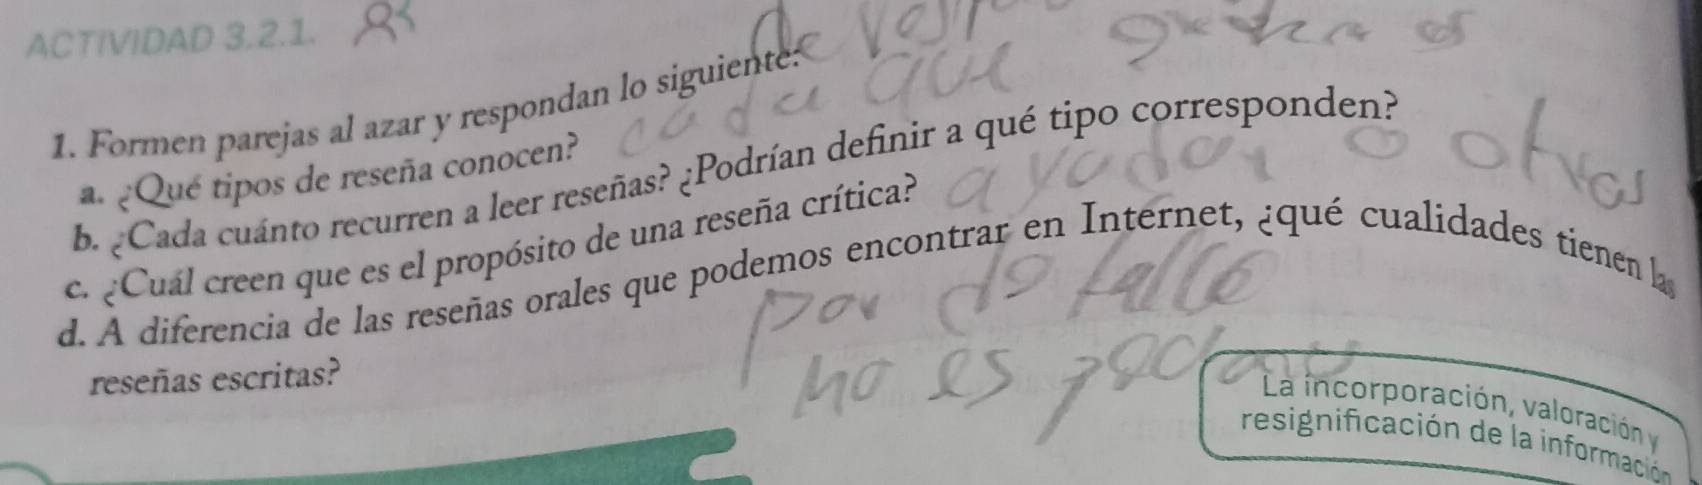 ACTIVIDAD 3.2.1.
1. Formen parejas al azar y respondan lo siguiente:
a. ¿Qué tipos de reseña conocen?
b. ¿Cada cuánto recurren a leer reseñas? ¿Podrían definir a qué tipo corresponden?
c. ¿Cuál creen que es el propósito de una reseña crítica?
d. A diferencia de las reseñas orales que podemos encontrar en Internet, ¿qué cualidades tienen las
reseñas escritas?
cada que
ayudar o otros
por
no es
La incorporación, valoración y
resignificación de la información